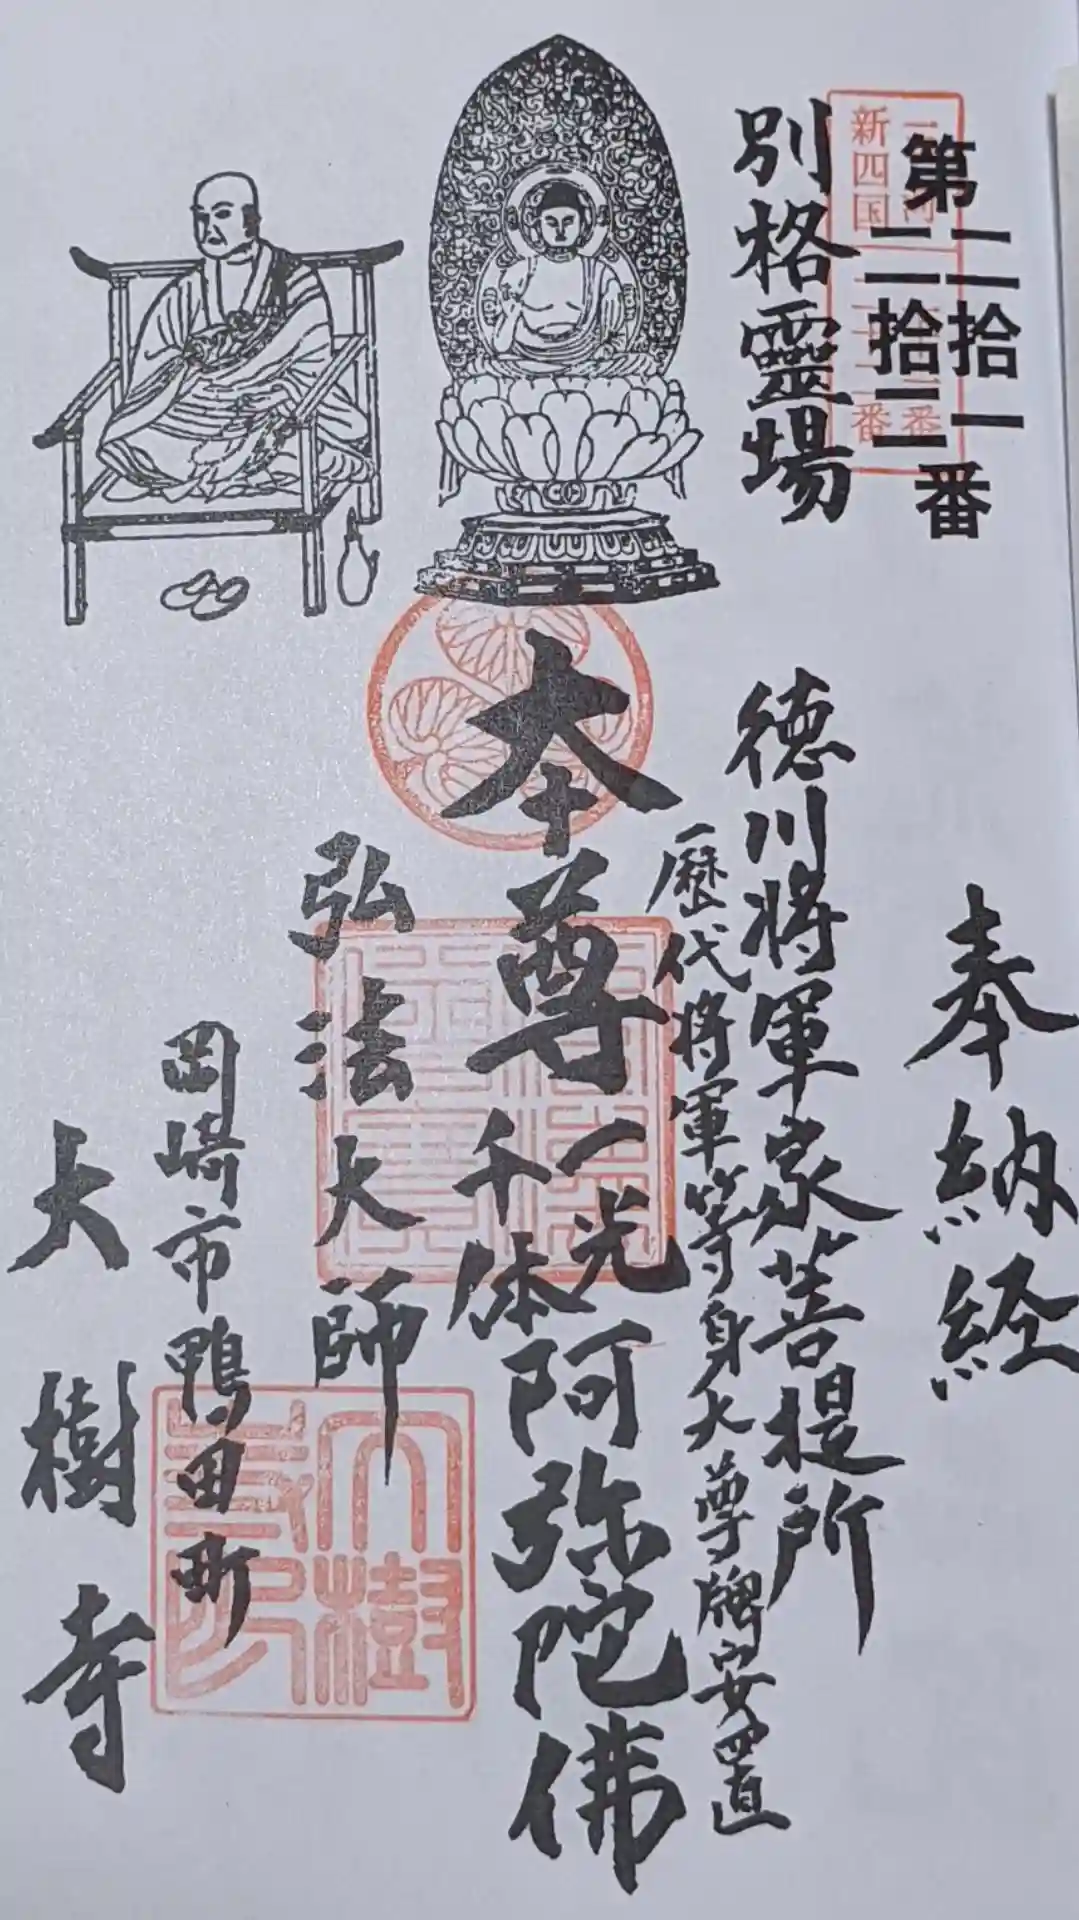 奉納経
第二拾一二拾二番
別格靈場
徳川將軍家菩提所
歴代將軍等身大尊牌安置
本尊一光千体阿弥陀佛
弘法大師
岡崎市鴨田町
大樹寺
新四国
番
番
大樹